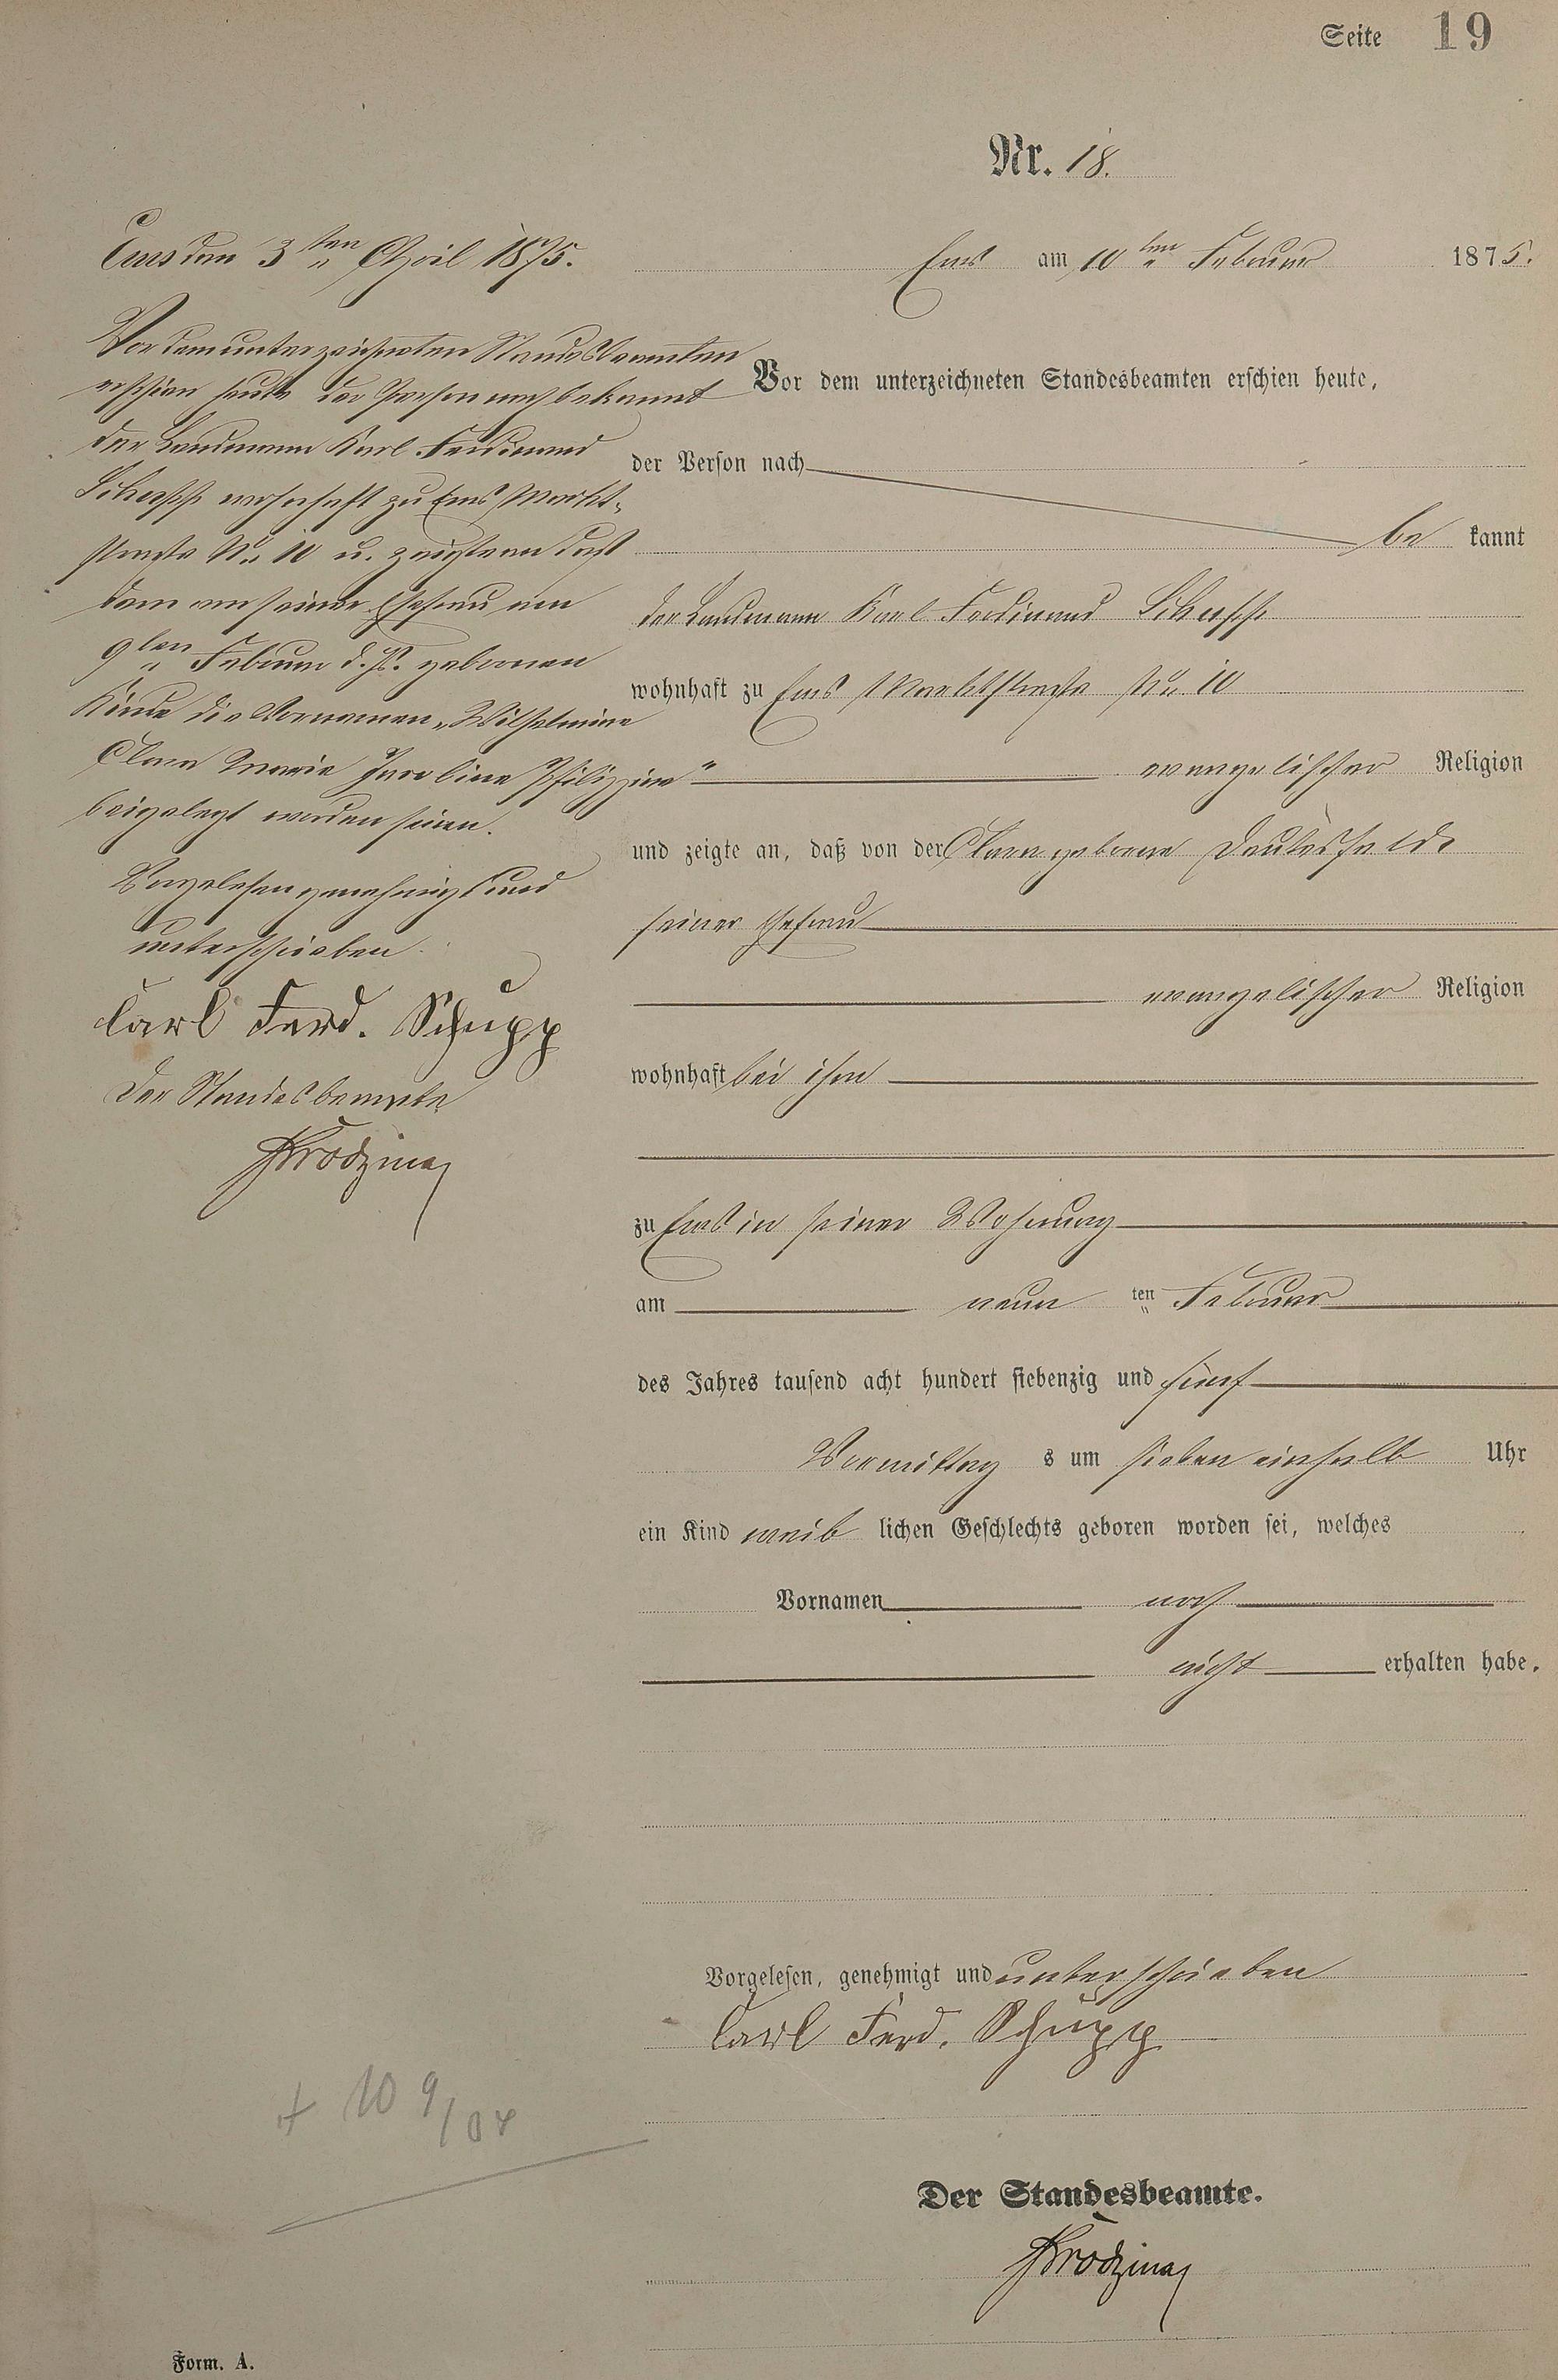 Seite 19
Nr. 18.
Ems am 10ten Februar 1875.
Vor dem unterzeichneten Standesbeamten erschien heute,
der Person nach
be kannt
der Landmann Karl Ferdinand Schupp
wohnhaft zu Ems Marktstraße No. 10
evangelischer Religion
und zeigte an, daß von der Clara geborene
seiner Ehefrau
evangelischer Religion
wohnhaft bei ihm
zu Ems in seiner Wohnung
am neun ten Februar
des Jahres tausend acht hundert siebenzig und fünf
Vormittag s um sieben einhalb Uhr
ein Kind weib lichen Geschlechts geboren worden sei, welches
Vornamen noch
nicht erhalten habe.
Vorgelesen, genehmigt und unterschrieben
Carl Ferd. Schupp
Der Standesbeamte.
Ems den 3ten April 1875.
Vor dem unterzeichneten Standesbeamten
erschien heute der Person nach bekannt
der Landmann Karl Ferdinand
Schupp wohnhaft zu Ems Markt-
straße No. 10 u. zeigte an daß
dem von seiner Ehefrau am
9ten Februar d. Js. geborenen
Kinde die Vornamen „Wilhelmine
Clara Marie Karoline Philippine“
beigelegt worden seien.
Vorgelesen genehmigt und
unterschrieben.
Carl Ferd. Schupp
Der Standesbeamte
+ 10 9/04
Form. A.